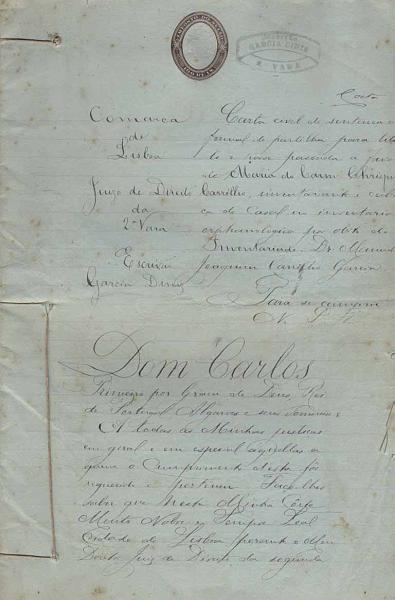 IMPOSTO DO SELLO
GARCIA DINIZ
2. VARA
Comarca
de
Lisboa
Juizo de Direito
da
2ª Vara
Escrivão
Garcia Diniz
Carta civel de sentença
formal de partilha para
de Maria do Carmo
Carrilho, inventariante e
ça de casal no inventario
orphanologico por obito do
Inventariado Dr. Manuel
Joaquim Carrilho Garcia
Para se cumprir
Dom Carlos
Primeiro por Graça de Deus, Rei
de Portugal Algarves e seus dominios
A todas as Minhas justiças
em geral e em especial aquellas a
quem o cumprimento desta fôr
requerido e pertença Faço-lhes
saber que nesta Minha Côrte
Muito Nobre e Sempre Leal
Cidade de Lisboa perante o Meu
Doutor Juiz de Direito da segunda